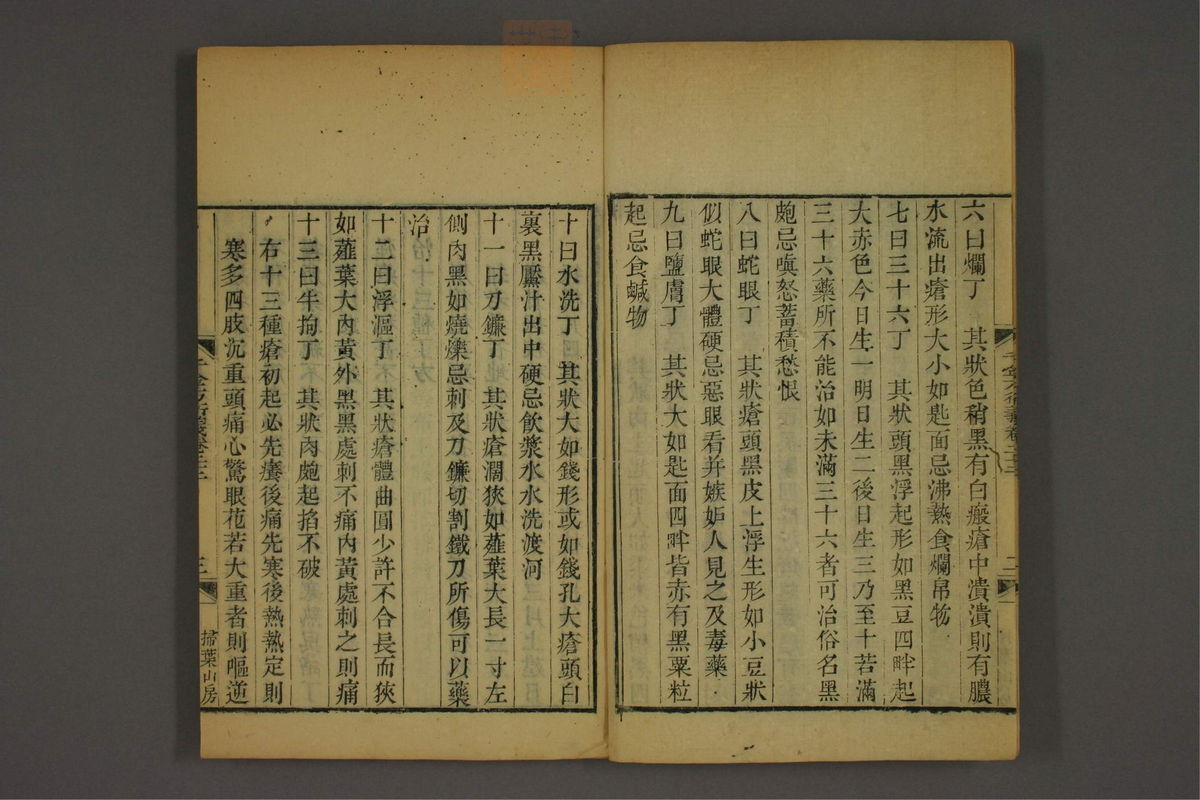 六曰爛丁　其狀色稍黑有白瘢瘡中潰潰則有膿
水流出瘡形大小如匙面忌沸熱食爛帛物
七曰三十六丁　其狀頭黑浮起形如黑豆四畔起
大赤色今日生一明日生二後日生三乃至十若滿
三十六藥所不能治如未滿三十六者可治俗名黑
皰忌嗔怒蓄積愁恨
八曰蛇眼丁　其狀瘡頭黑皮上浮生形如小豆狀
似蛇眼大體硬忌惡眼看并嫉妒人見之及毒藥
九曰鹽膚丁　其狀大如匙面四畔皆赤有黑粟粒
起忌食鹹物
十曰水洗丁　其狀大如錢形或如錢孔大瘡頭白
裏黑黶汁出中硬忌飲漿水水洗渡河
十一曰刀鐮丁　其狀瘡濶狹如薤葉大長一寸左
側肉黑如燒爍忌刺及刀鐮切割鐵刀所傷可以藥
治
十二曰浮漚丁　其狀瘡體曲圓少許不合長而狹
如薤葉大內黃外黑黑處刺不痛內黃處刺之則痛
十三曰牛拘丁　其狀肉皰起掐不破
右十三種瘡初起必先癢後痛先寒後熱熱定則
寒多四肢沉重頭痛心驚眼花若大重者則嘔逆
三
掃葉山房